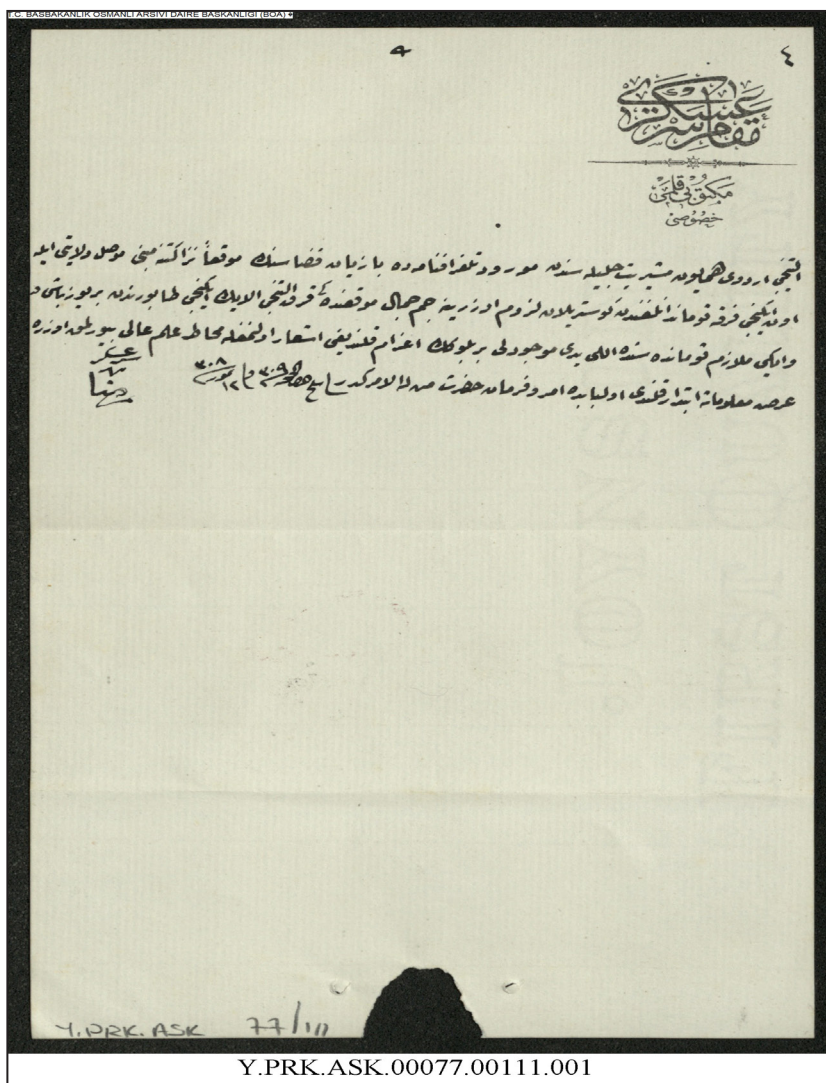 T.C. BASBAKANLIK OSMANLI ARSIVI DAIRE BASKANLIGI (BOA)
٤
مقام سر عسكرى
مكتوبى قلمى
خصوصى
التنجى اردوى همايون مشيريت جليله سندن مورود تلغرافنامه ده بازيان قضاسنك موقعاً نزاكتنه مبنى موصل ولايتى ايله
اون ايكنجى فرقه قومانداانلغندن كوستريلان لزوم اوزرينه جم جمال موقعنده كى قرق التنجى الايك ايكنجى طابورندن بر يوزباشى و
وايكى ملازم قومانده سنده اللى يدى موجودلى بر بلوكك اعزام قلنديغى اشعار اولنمغله محاط علم عالى بيورلمق اوزره
عرض معلوماته ابتدار قلندى اولبابده امر وفرمان حضرت من له الامركدر
سر عسكر
رضا
Y.PRK.ASK 77/111
Y.PRK.ASK.00077.00111.001